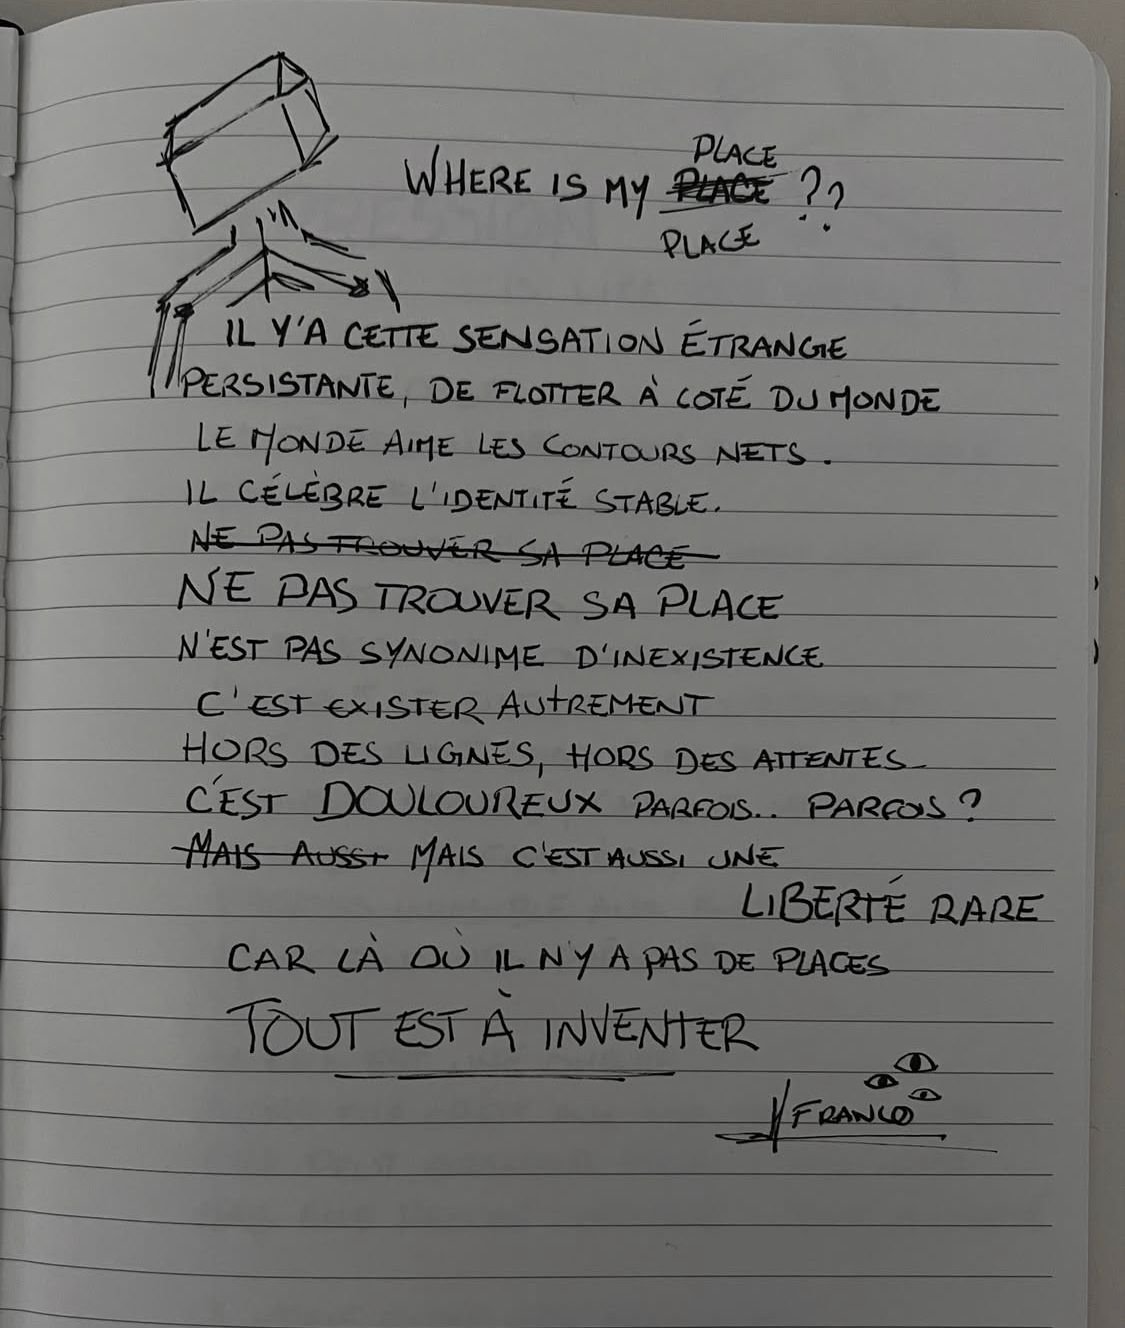 PLACE
WHERE IS MY PLACE ??
PLACE
IL Y'A CETTE SENSATION ÉTRANGE
PERSISTANTE, DE FLOTTER À COTÉ DU MONDE
LE MONDE AIME LES CONTOURS NETS.
IL CÉLÈBRE L'IDENTITÉ STABLE.
NE PAS TROUVER SA PLACE
NE PAS TROUVER SA PLACE
N'EST PAS SYNONIME D'INEXISTENCE
C'EST EXISTER AUTREMENT
HORS DES LIGNES, HORS DES ATTENTES
C'EST DOULOUREUX PARFOIS.. PARFOIS ?
MAIS AUSSI MAIS C'EST AUSSI UNE
LIBERTÉ RARE
CAR LÀ OÙ IL N'Y A PAS DE PLACES
TOUT EST À INVENTER
FRANCO